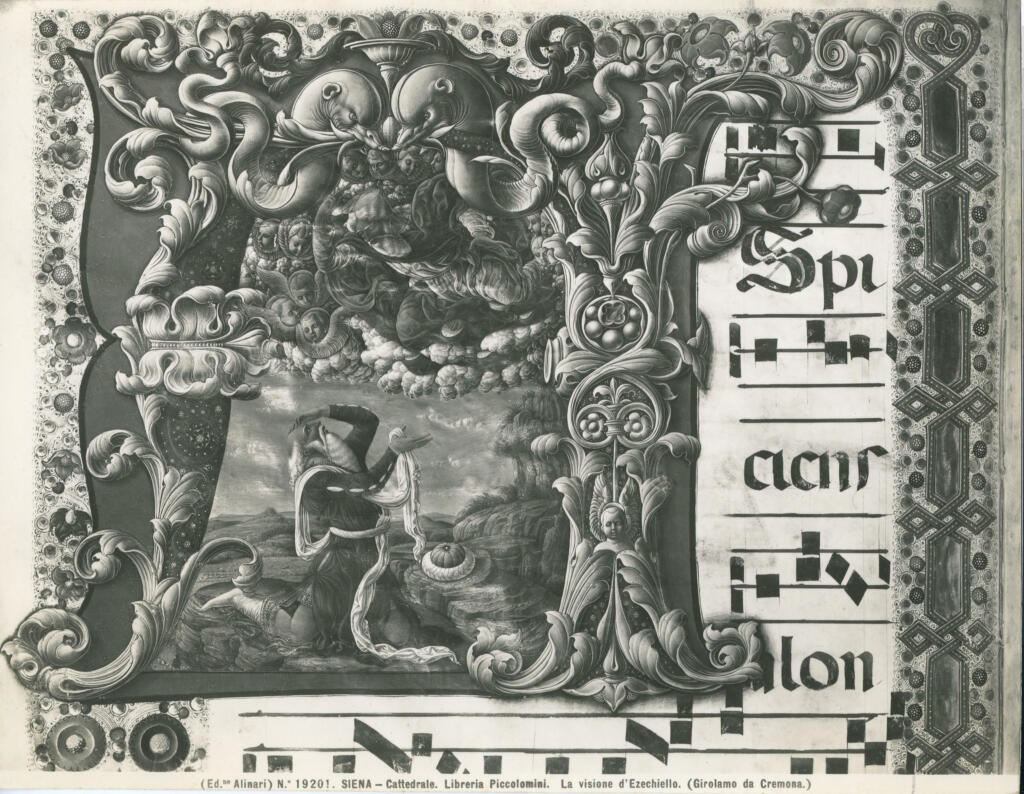 Spi
ciens
alon
(Ed.ne Alinari) N.° 19201. SIENA – Cattedrale. Libreria Piccolomini. La visione d'Ezechiello. (Girolamo da Cremona.)